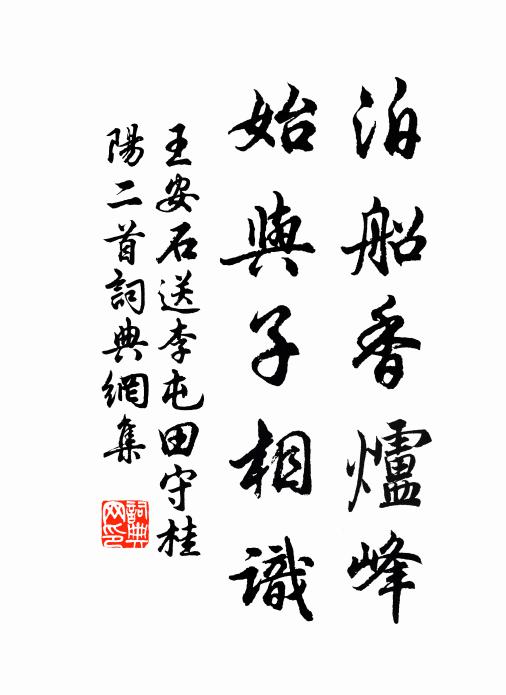 泊船香爐峰
始與子相識
王安石送李屯田守桂
陽二首詞典網集
詞典
网印